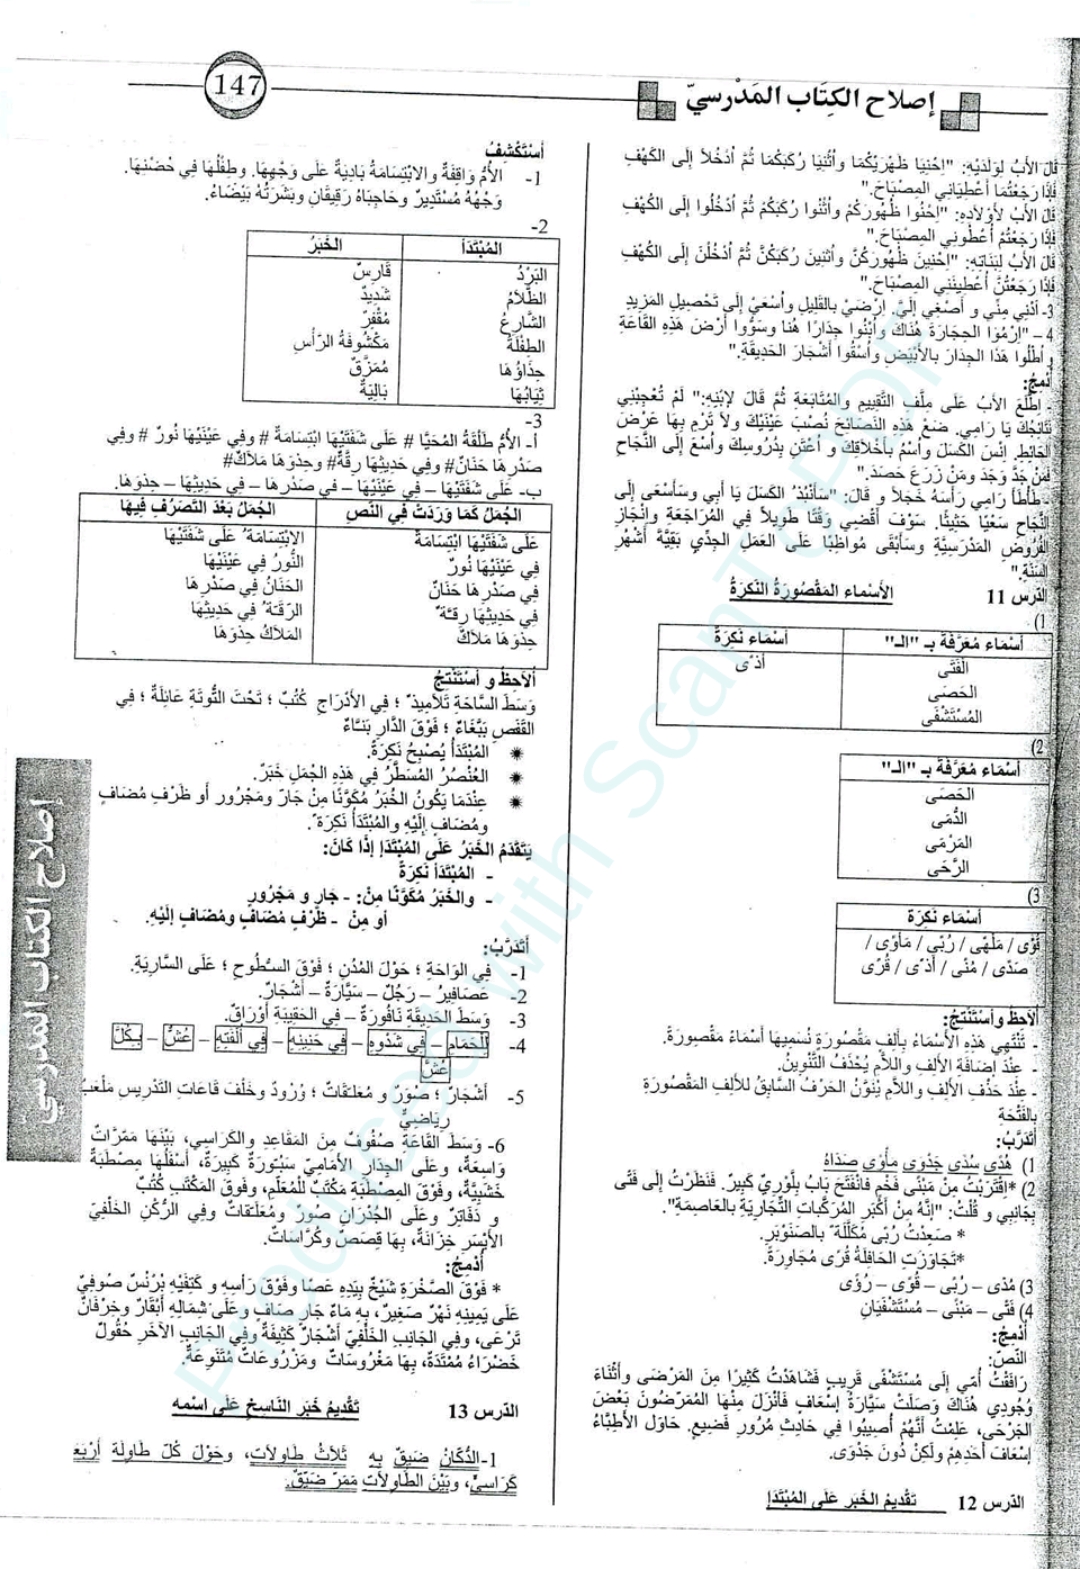 147
إصلاح الكِتَاب المَدْرسيّ
قَالَ الأَبُ لِوَلَدَيْهِ: "اِحْنِيَا ظَهْرَيْكُمَا وَاُثْنِيَا رُكَبَكُمَا ثُمَّ اُدْخُلاَ إِلَى الكَهْفِ
فَإِذَا رَجَعْتُمَا أَعْطِيَانِي المِصْبَاحَ."
قَالَ الأَبُ لأَوْلاَدِهِ: "اِحْنُوا ظُهُورَكُمْ وَاُثْنُوا رُكَبَكُمْ ثُمَّ اُدْخُلُوا إِلَى الكَهْفِ
فَإِذَا رَجَعْتُمْ أَعْطُونِي المِصْبَاحَ."
قَالَ الأَبُ لِبَنَاتِهِ: "اِحْنِينَ ظُهُورَكُنَّ وَاُثنِينَ رُكَبَكُنَّ ثُمَّ اُدْخُلْنَ إِلَى الكَهْفِ
فَإِذَا رَجَعْتُنَّ أَعْطِينَنِي المِصْبَاحَ."
3- اُدْنِي مِنِّي وَ أَصْغِي إِلَيَّ. اِرْضَيْ بِالقَلِيلِ وَاُسْعَيْ إِلَى تَحْصِيلِ المَزِيدِ
4 – "اِرْمُوا الحِجَارَةَ هُنَاكَ وَاُبْنُوا جِدَارًا هُنا وَسَوُّوا أَرْضَ هَذِهِ القَاعَةِ
وَ اُطْلُوا هَذَا الجِدَارَ بِالأَبْيَضِ وَاُسْقُوا أَشْجَارَ الحَدِيقَةِ."
أُدْمِجُ:
- اِطَّلَعَ الأَبُ عَلَى مِلَفِّ التَّقْيِيمِ والمُتَابَعَةِ ثُمَّ قَالَ لاِبْنِهِ:" لَمْ تُعْجِبْنِي
نَتَائِجُكَ يَا رَامِي. ضَعْ هَذِهِ النَّصَائِحَ نُصْبَ عَيْنَيْكَ وَلاَ تَرْمِ بِهَا عَرْضَ
الحَائِطِ. اِنْسَ الكَسَلَ وَاُسْمُ بِأَخْلاَقِكَ وَ اُعْتَنِ بِدُرُوسِكَ وَاُسْعَ إِلَى النَّجَاحِ
فَمَنْ جَدَّ وَجَدَ وَمَنْ زَرَعَ حَصَدَ."
- طَأْطَأَ رَامِي رَأْسَهُ خَجَلاً وَ قَالَ: "سَأَنْبُذُ الكَسَلَ يَا أَبِي وَسَأَسْعَى إِلَى
النَّجَاحِ سَعْيًا حَثِيثًا. سَوْفَ أَقْضِي وَقْتًا طَوِيلاً فِي المُرَاجَعَةِ وَإِنْجَازِ
الفُرُوضِ المَدْرَسِيَّةِ وَسَأَبْقَى مُواظِبًا عَلَى العَمَلِ الجِدِّي بَقِيَّةَ أَشْهُرِ
السَّنَةِ."
الدّرس 11 الأَسْمَاء المَقْصُورَةُ النَّكِرَةُ
1)
أسْمَاء مُعَرَّفَة بـ "الـ" أسْمَاء نَكِرَةٌ
الفَتَى أَذًى
الحَصَى
المُسْتَشْفَى
2)
أسْمَاء مُعَرَّفَة بـ "الـ"
الحَصَى
الدُّمَى
المَرْمَى
الرَّحَى
3)
أسْمَاء نَكِرَة
قُوًى / مَلْهًى / رُبًى / مَأْوًى /
صَدًى / مُنًى / أَذًى / قُرًى
أُلاَحِظُ وَأَسْتَنْتِجُ:
- تَنْتَهِي هَذِهِ الأَسْمَاءُ بِأَلِفٍ مَقْصُورَةٍ نُسَمِيهَا أَسْمَاءً مَقْصِورَةً.
- عِنْدَ إِضَافَةِ الأَلِفِ وَاللاَّمِ يُحْذَفُ التَّنْوِينُ.
- عِنْدَ حَذْفِ الأَلِفِ وَاللاَّمِ يُنَوَّنُ الحَرْفُ السَّابِقُ لِلأَلِفِ المَقْصُورَةِ
بِالفَتْحَةِ
أَتَدَرَّبُ:
1) هُدًى سُدًى جَدْوَى مَأْوًى صَدَاهُ
2) *اِقْتَرَبْتُ مِنْ مَبْنًى فَخْمٍ فَانْفَتَحَ بَابُ بِلَّوْرِيّ كَبِيرٌ. فَنَظَرْتُ إِلَى فَتًى
بِجَانِبِي وَ قُلْتُ: "إِنَّهُ مِنْ أَكْبَرِ المُرَكَّبَاتِ التِّجَارِيَّةِ بِالعَاصِمَةِ".
* صَعِدْتُ رُبًى مُكَلَّلَة بِالصَنَوْبَرِ.
*تَجَاوَزَتِ الحَافِلَةُ قُرًى مُجَاوِرَةً.
3) مُدًى – رُبًى – قُوًى – رُؤًى
4) فَتًى – مَبْنًى – مُسْتَشْفَيَانِ
أُدْمِجُ:
النّصّ:
رَافَقْتُ أُمِّي إِلَى مُسْتَشْفًى قَرِيبٍ فَشَاهَدْتُ كَثِيرًا مِنَ المَرْضَى وَأَثْنَاءَ
وُجُودِي هُنَاكَ وَصَلَتْ سَيَّارَةُ إِسْعَافٍ فَأَنْزَلَ مِنْهَا المُمَرِّضُونَ بَعْضَ
الجَرْحَى، عَلِمْتُ أَنَّهُمْ أُصِيبُوا فِي حَادِثِ مُرُورٍ فَضِيعٍ. حَاوَلَ الأَطِبَّاءُ
إِسْعَافَ أَحَدِهِمْ وَلَكِنْ دُونَ جَدْوَى.
الدّرس 12 تَقْدِيمُ الخَبَرِ عَلَى المُبْتَدَإِ
أَسْتَكْشِفُ
1- الأُمُّ وَاقِفَةٌ والابْتِسَامَةُ بَادِيَةٌ عَلَى وَجْهِهَا. وَطِفْلُهَا فِي حُضْنِهَا.
وَجْهُهُ مُسْتَدِيرٌ وَحَاجِبَاهُ رَقِيقَانِ وَبَشَرَتُهُ بَيْضَاءُ.
2-
المُبْتَدَأ الخَبَرُ
البَرْدُ قَارِسٌ
الظَّلاَمُ شَدِيدٌ
الشَّارِعُ مُقْفِرٌ
الطِفْلَةُ مَكْشُوفَةُ الرَّأْسِ
حِذَاؤُهَا مُمَزَّقٌ
ثِيَابُهَا بَالِيَةٌ
3-
أ- الأُمُّ طَلْقَةُ المُحَيَّا # عَلَى شَفَتَيْهَا ابْتِسَامَةٌ # وَفِي عَيْنَيْهَا نُورٌ # وَفِي
صَدْرِهَا حَنَانٌ# وَفِي حَدِيثِهَا رِقَّةٌ# وَحِذْوَهَا مَلاَكٌ#
ب- عَلَى شَفَتَيْهَا – فِي عَيْنَيْهَا – فِي صَدْرِهَا – فِي حَدِيثِهَا – حِذْوَهَا.
الجُمَلُ كَمَا وَرَدَتْ فِي النَّصِ الجُمَلُ بَعْدَ التَصَرُّفِ فِيهَا
عَلَى شَفَتَيْهَا ابْتِسَامَةٌ الابْتِسَامَةُ عَلَى شَفَتَيْهَا
فِي عَيْنَيْهَا نُورٌ النُّورُ فِي عَيْنَيْهَا
فِي صَدْرِهَا حَنَانٌ الحَنَانُ فِي صَدْرِهَا
فِي حَدِيثِهَا رِقَّةٌ الرِّقَّةُ فِي حَدِيثِهَا
حِذْوَهَا مَلاَكٌ المَلاَكُ حِذْوَهَا
أُلاَحِظُ وَ أَسْتَنْتِجُ
وَسَطَ السَّاحَةِ تَلاَمِيذٌ ؛ فِي الأَدْرَاجِ كُتُبٌ ؛ تَحْتَ التُّوتَةِ عَائِلَةٌ ؛ فِي
القَفَصِ بَبَّغَاءٌ ؛ فَوْقَ الدَّارِ بَنَّاءٌ
المُبْتَدَأُ يُصْبِحُ نَكِرَةً.
العُنْصُرُ المُسَطَّرُ فِي هَذِهِ الجُمَلِ خَبَرٌ.
عِنْدَمَا يَكُونُ الخَبَرُ مُكَوَّنًا مِنْ جَارّ وَمَجْرُور أَو ظَرْفٍ مُضَافٍ
وَمُضَافٍ إِلَيْهِ وَالمُبْتَدَأُ نَكِرَةً.
يَتَقَدَّمُ الخَبَرُ عَلَى المُبْتَدَإِ إِذَا كَانَ:
- المُبْتَدَأُ نَكِرَةً
- وَالخَبَرُ مُكَوَّنًا مِنْ: - جَارٍ وَ مَجْرُورٍ
أَو مِنْ - ظَرْفٍ مُضَافٍ وَمُضَافٍ إِلَيْهِ.
أَتَدَرَّبُ:
1- فِي الوَاحَةِ ؛ حَوْلَ المُدُنِ ؛ فَوْقَ السُّطُوحِ ؛ عَلَى السَّارِيَةِ.
2- عَصَافِيرُ – رَجُلٌ – سَيَّارَةٌ – أَشْجَارٌ.
3- وَسَطَ الحَدِيقَةِ نَافُورَةٌ – فِي الحَقِيبَةِ أَوْرَاقٌ.
4- لِلْحَمَامِ – فِي شَدْوِهِ – فِي حَنِينِهِ – فِي أُلْفَتِهِ – عُشٌّ – بِكُلِّ
عُشٍّ
5- أَشْجَارٌ ؛ صُوَرٌ وَ مُعَلَّقَاتٌ ؛ وُرُودٌ وَخَلْفَ قَاعَاتِ التَدْرِيسِ مَلْعَبٌ
رِيَاضِيٌّ
6- وَسَطَ القَاعَةِ صُفُوفٌ مِنَ المَقَاعِدِ وَالكَرَاسِي، بَيْنَهَا مَمَرَّاتٌ
وَاسِعَةٌ، وَعَلَى الجِدَارِ الأَمَامِيِّ سَبُّورَةٌ كَبِيرَةٌ، أَسْفَلُهَا مِصْطَبَةٌ
خَشَبِيَّةٌ، وَفَوْقَ المِصْطَبَةِ مَكْتَبٌ لِلْمُعَلِّمِ، وَفَوقَ المَكْتَبِ كُتُبٌ
وَ دَفَاتِرٌ وَعَلَى الجُدْرَانِ صُوَرٌ وَمُعَلَّقَاتٌ وَفِي الرُّكْنِ الخَلْفِيّ
الأَيْسَرِ خِزَانَةٌ، بِهَا قِصَصٌ وَكُرَّاسَاتٌ.
أُدْمِجُ:
* فَوْقَ الصَّخْرَةِ شَيْخٌ بِيَدِهِ عَصًا وَفَوْقَ رَأْسِهِ وَ كَتِفَيْهِ بُرْنُسٌ صُوفِيٌّ
عَلَى يَمِينِهِ نَهْرٌ صَغِيرٌ، بِهِ مَاءٌ جَارٍ صَافٍ وَعَلَى شِمَالِهِ أَبْقَارٌ وَخِرْفَانٌ
تَرْعَى، وَفِي الجَانِبِ الخَلْفِيّ أَشْجَارٌ كَثِيفَةٌ وَفِي الجَانِبِ الآخَرِ حُقُولٌ
خَضْرَاءُ مُمْتَدَةٌ، بِهَا مَغْرُوسَاتٌ وَمَزْرُوعَاتٌ مُتَنَوِعَةٌ.
الدّرس 13 تَقْدِيمُ خَبَرِ النَاسِخِ عَلَى اسْمِهِ
1-الدُّكَّانُ ضَيِقٌ بِهِ ثَلاَثُ طَاوِلاَتٍ، وَحَوْلَ كُلّ طَاوِلَةٍ أَرْبَعَةُ
كَرَاسِيٍّ، وَبَيْنَ الطَاوِلاَتِ مَمَرّ ضَيِّقٌ.
إصلاح الكتاب المدرسيّ
Produced with ScanTOPDF